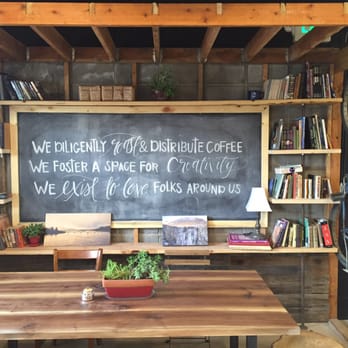 WE DILIGENTLY roast & DISTRIBUTE COFFEE
WE FOSTER A SPACE FOR Creativity
WE exist to love FOLKS AROUND US